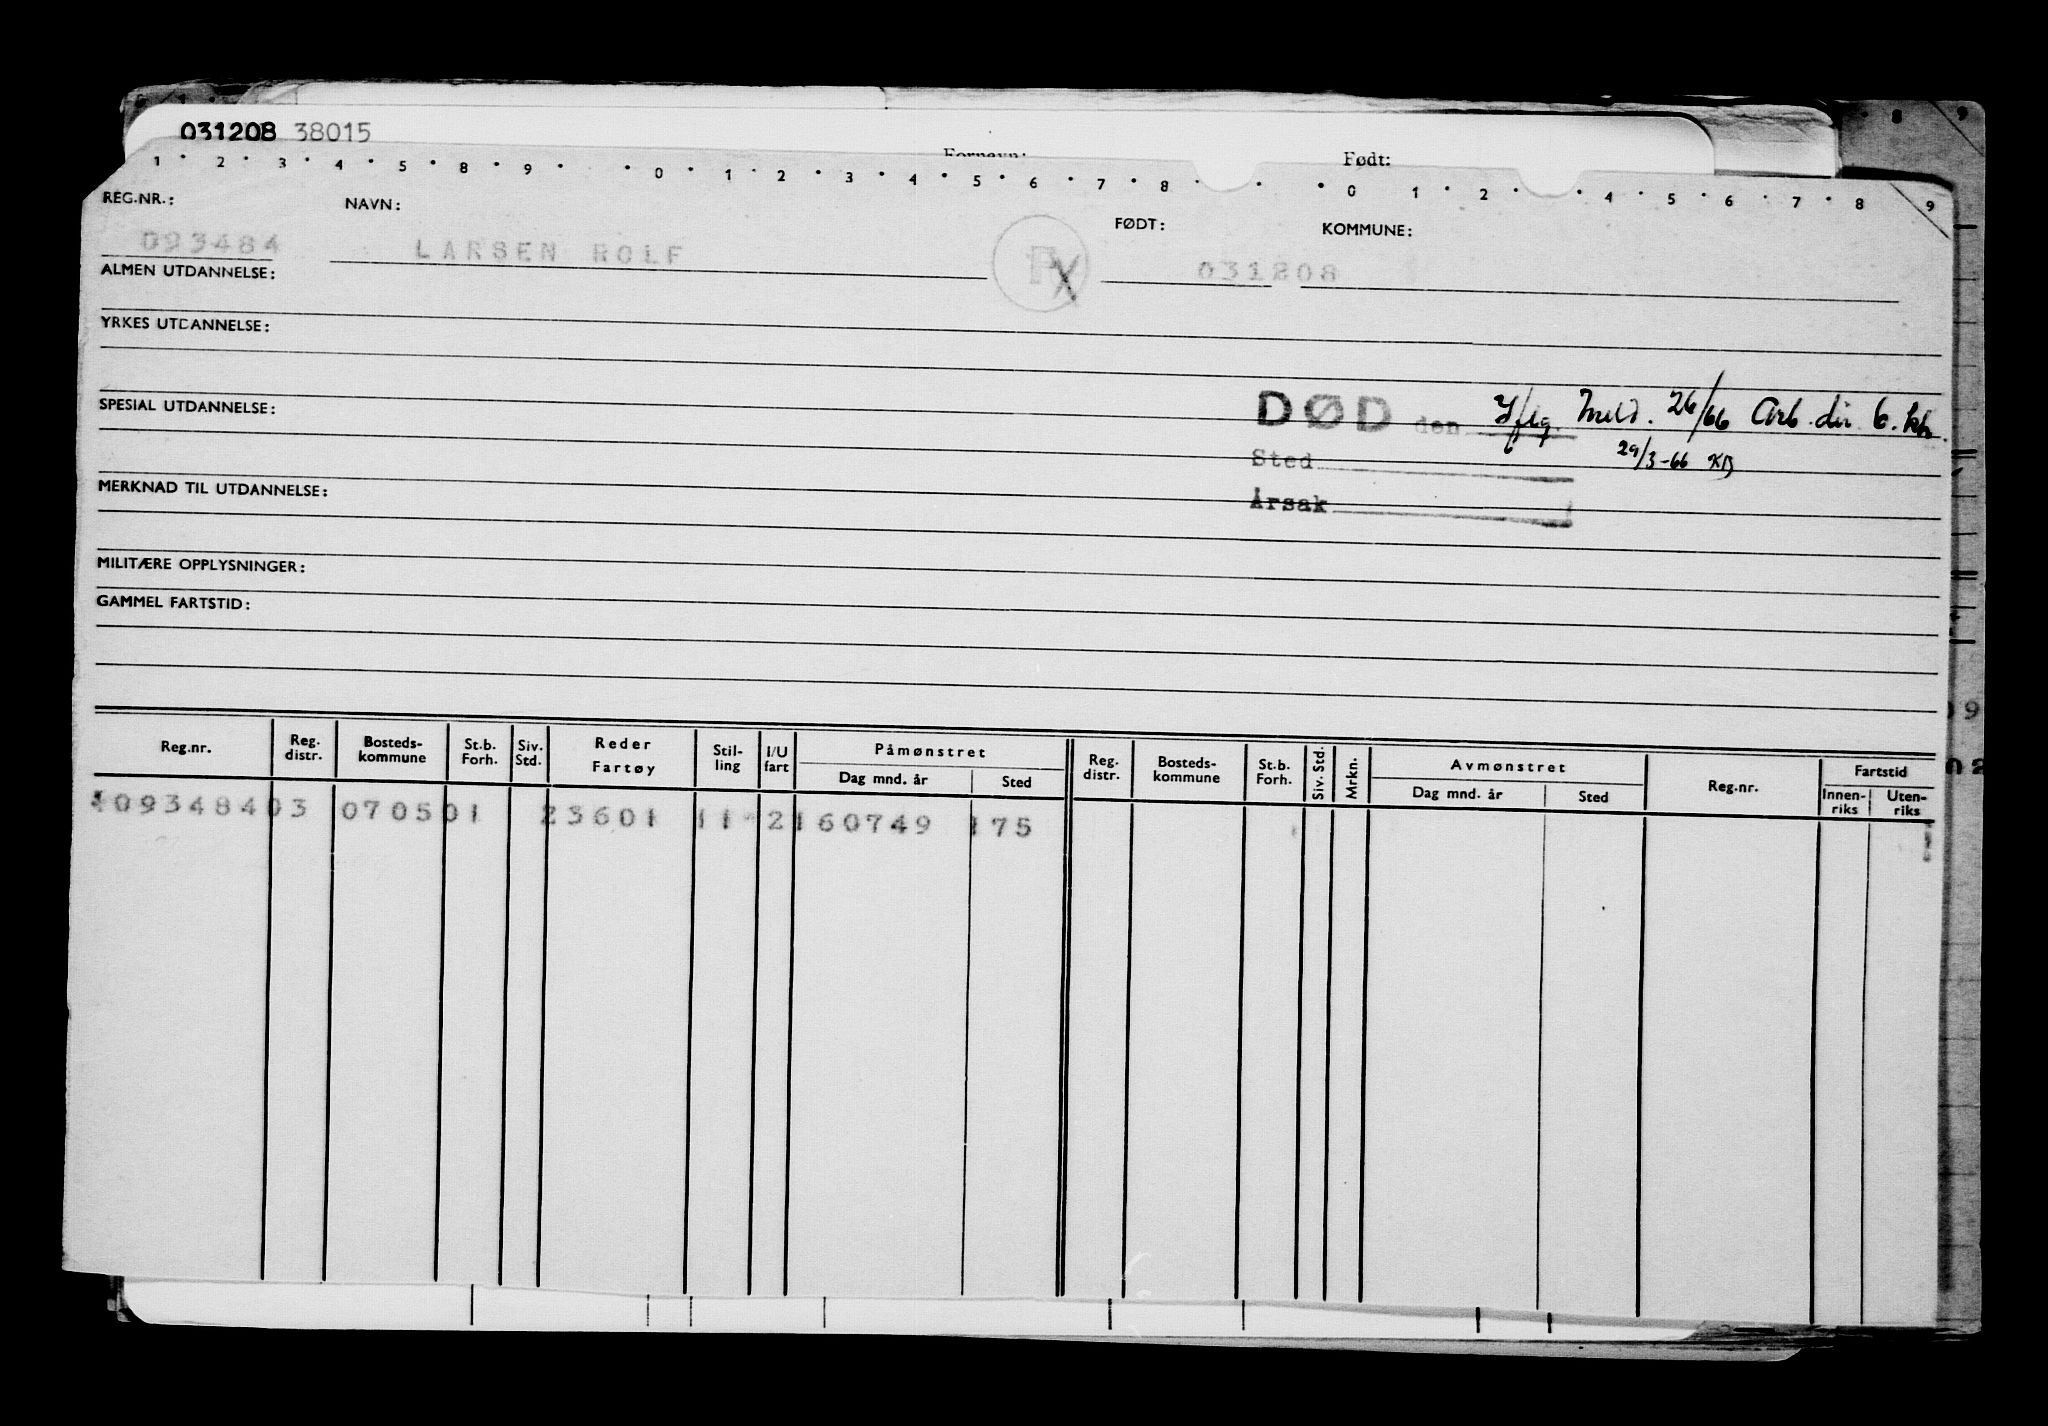 031208 38015
Fornavn: Født:
1 2 3 4 5 8 9 0 1 2 3 4 5 6 7 8 0 1 2 4 5 6 7 8 9
REG.NR.: NAVN: FØDT: KOMMUNE:
093484 LARSEN ROLF 031208
ALMEN UTDANNELSE:
YRKES UTDANNELSE:
SPESIAL UTDANNELSE:
DØD den Iflg. Meld. 26/66 Arb. dir 6. kh.
29/3-66 KB
Sted
Årsak
MERKNAD TIL UTDANNELSE:
MILITÆRE OPPLYSNINGER:
GAMMEL FARTSTID:
Reg.nr. Reg. distr. Bosteds-kommune St.b. Forh. Siv. Std. Reder Fartøy Stil-ling I/U fart Påmønstret Dag mnd. år Sted Reg. distr. Bosteds-kommune St.b. Forh. Siv. Std. Mrkn. Avmønstret Dag mnd. år Sted Reg.nr. Fartstid Innen-riks Uten-riks
09348403 070501 23601 11 2160749 175